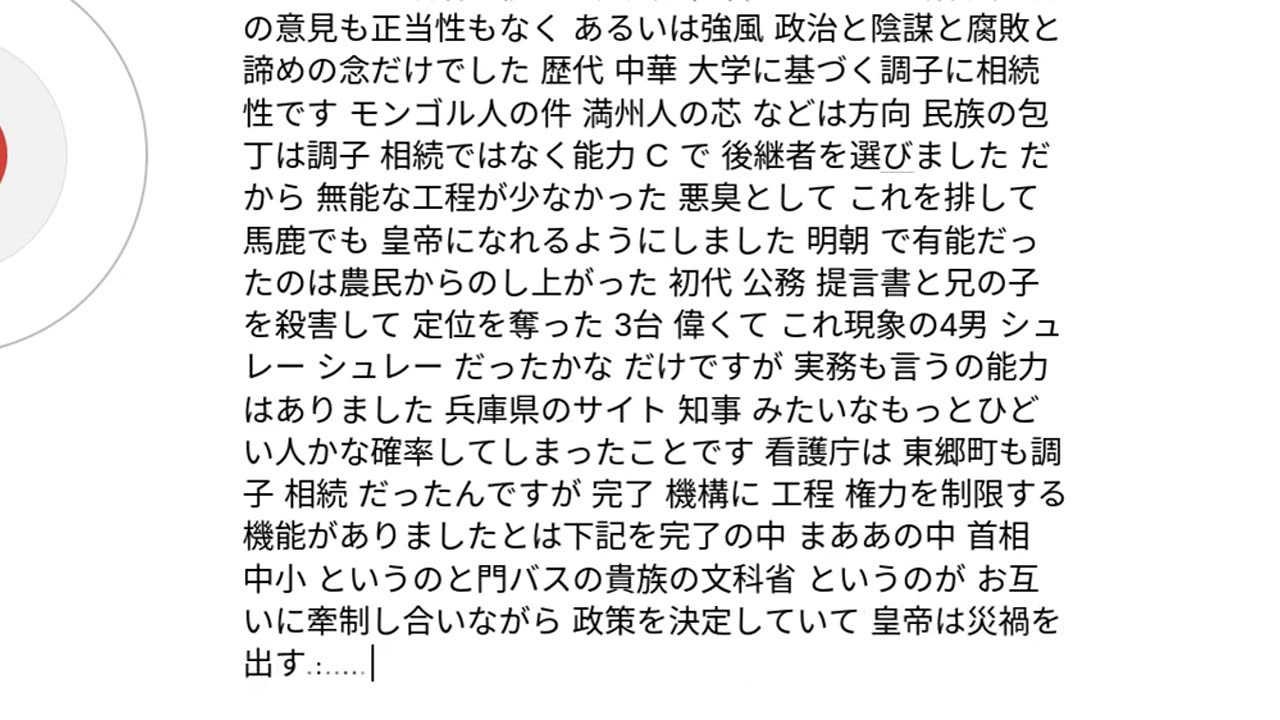 の意見も正当性もなく あるいは強風 政治と陰謀と腐敗と
諦めの念だけでした 歴代 中華 大学に基づく調子に相続
性です モンゴル人の件 満州人の芯 などは方向 民族の包
丁は調子 相続ではなく能力 C で 後継者を選びました だ
から 無能な工程が少なかった 悪臭として これを排して
馬鹿でも 皇帝になれるようにしました 明朝 で有能だっ
たのは農民からのし上がった 初代 公務 提言書と兄の子
を殺害して 定位を奪った 3台 偉くて これ現象の4男 シュ
レー シュレー だったかな だけですが 実務も言うの能力
はありました 兵庫県のサイト 知事 みたいなもっとひど
い人かな確率してしまったことです 看護庁は 東郷町も調
子 相続 だったんですが 完了 機構に 工程 権力を制限する
機能がありましたとは下記を完了の中 まああの中 首相
中小 というのと門バスの貴族の文科省 というのが お互
いに牽制し合いながら 政策を決定していて 皇帝は災禍を
出す.:.....